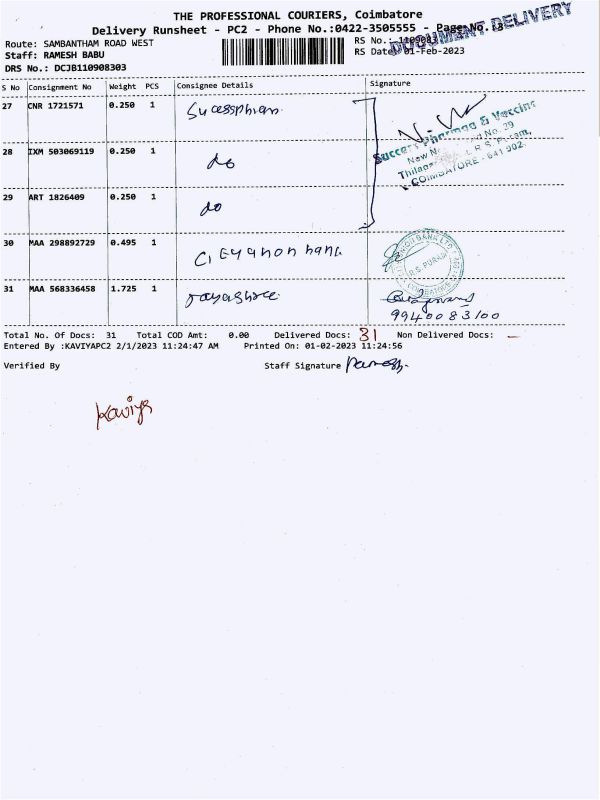 THE PROFESSIONAL COURIERS, Coimbatore
Delivery Runsheet - PC2 - Phone No.:0422-3505555 - Page No. :3
DOCUMENT DELIVERY
Route: SAMBANTHAM ROAD WEST
RS No.:
Staff: RAMESH BABU
RS Date: 01-Feb-2023
DRS No.: DCJB110908303
S No Consignment No Weight PCS Consignee Details Signature
27 CNR 1721571 0.250 1
Success Pharma & Vaccine
28 IXM 503069119 0.250 1 do
COIMBATORE - 641 002.
29 ART 1826409 0.250 1 do
30 MAA 298892729 0.495 1
R.S. PURAM
31 MAA 568336458 1.725 1
9940083100
Total No. Of Docs: 31 Total COD Amt: 0.00 Delivered Docs: 31 Non Delivered Docs: —
Entered By :KAVIYAPC2 2/1/2023 11:24:47 AM Printed On: 01-02-2023 11:24:56
Verified By Staff Signature Ramesh
Kaviya